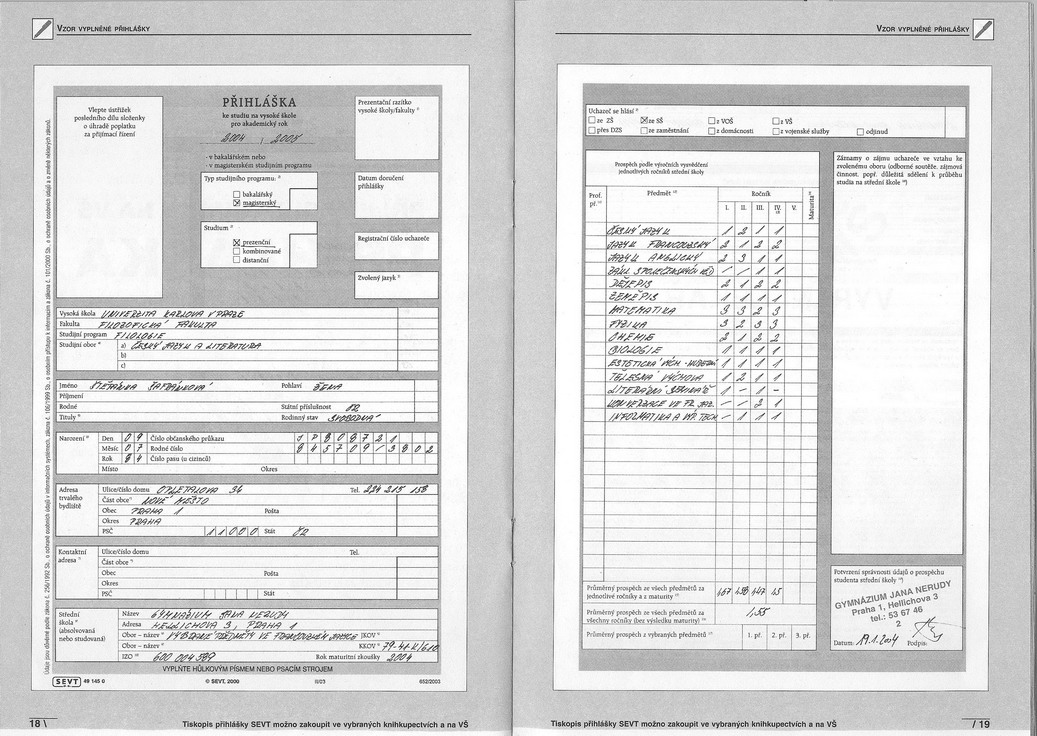 VZOR VYPLNĚNÉ PŘIHLÁŠKY
Vlepte ústřižek
posledního dílu složenky
o úhradě poplatku
za přijímací řízení
PŘIHLÁŠKA
ke studiu na vysoké škole
pro akademický rok
2004 / 2005
- v bakalářském nebo
- v magisterském studijním programu
Typ studijního programu:
bakalářský
magisterský
Studium
prezenční
kombinované
distanční
Prezentační razítko
vysoké školy/fakulty
Datum doručení
přihlášky
Registrační číslo uchazeče
Zvolený jazyk
Vysoká škola UNIVERZITA KARLOVA V PRAZE
Fakulta FILOZOFICKÁ FAKULTA
Studijní program FILOLOGIE
Studijní obor a) ČESKÝ JAZYK A LITERATURA
b)
c)
Jméno ŠTĚPÁNKA ŠAFRÁNKOVÁ Pohlaví ŽENA
Příjmení
Rodné Státní příslušnost ČR
Tituly Rodinný stav SVOBODNÁ
Narození Den 09 Číslo občanského průkazu
Měsíc 07 Rodné číslo 845709/3802
Rok 84 Číslo pasu (u cizinců)
Místo Okres
Adresa trvalého bydliště
Ulice/číslo domu OPLETALOVA 36 Tel. 224 215 158
Část obce NOVÉ MĚSTO
Obec PRAHA 1 Pošta
Okres PRAHA
PSČ 11000 Stát ČR
Kontaktní adresa
Ulice/číslo domu Tel.
Část obce
Obec Pošta
Okres
PSČ Stát
Střední škola (absolvovaná nebo studovaná)
Název GYMNÁZIUM JANA NERUDY
Adresa HELLICHOVA 3, PRAHA 1
Obor - název VYBRANÉ PŘEDMĚTY VE FRANCOUZSKÉM JAZYCE JKOV
Obor - název KKOV 79-41-K/610
IZO 600 004 589 Rok maturitní zkoušky 2004
VYPLŇTE HŮLKOVÝM PÍSMEM NEBO PSACÍM STROJEM
SEVT 49 145 0 © SEVT, 2000 II/03 652/2003
18 \
Tiskopis přihlášky SEVT možno zakoupit ve vybraných knihkupectvích a na VŠ
VZOR VYPLNĚNÉ PŘIHLÁŠKY
Uchazeč se hlásí
ze ZŠ ze SŠ z VOŠ z VŠ
přes DZS ze zaměstnání z domácnosti z vojenské služby odjinud
Prospěch podle výročních vysvědčení
jednotlivých ročníků střední školy
Prof. př. Předmět Ročník Maturita
I. II. III. IV. V.
ČESKÝ JAZYK 1 2 1 1
JAZYK FRANCOUZSKÝ 2 1 2 2
JAZYK ANGLICKÝ 2 3 1 1
ZÁKL. SPOLEČENSKÝCH VĚD - - 1 1
DĚJEPIS 2 1 2 2
ZEMĚPIS 1 1 1 1
MATEMATIKA 3 3 2 3
FYZIKA 3 2 3 3
CHEMIE 2 1 2 2
BIOLOGIE 1 1 1 1
ESTETICKÁ VÝCH. - HUDEBNÍ 1 1 1 1
TĚLESNÁ VÝCHOVA 1 2 1 1
LITERÁRNÍ SEMINÁŘ - - 1 -
KONVERZACE VE FR. JAZ. - - 2 1
INFORMATIKA A VÝP. TECH. 1 1 1
Průměrný prospěch ze všech předmětů za
jednotlivé ročníky a z maturity
Průměrný prospěch ze všech předmětů za
všechny ročníky (bez výsledku maturity) 1,55
Průměrný prospěch z vybraných předmětů 1. př. 2. př. 3. př.
Záznamy o zájmu uchazeče ve vztahu ke
zvolenému oboru (odborné soutěže, zájmová
činnost, popř. důležitá sdělení k průběhu
studia na střední škole
Potvrzení správnosti údajů o prospěchu
studenta střední školy
GYMNÁZIUM JANA NERUDY
Praha 1, Hellichova 3
tel.: 53 67 46
2
Datum: 19.1.2004 Podpis:
Tiskopis přihlášky SEVT možno zakoupit ve vybraných knihkupectvích a na VŠ
/ 19